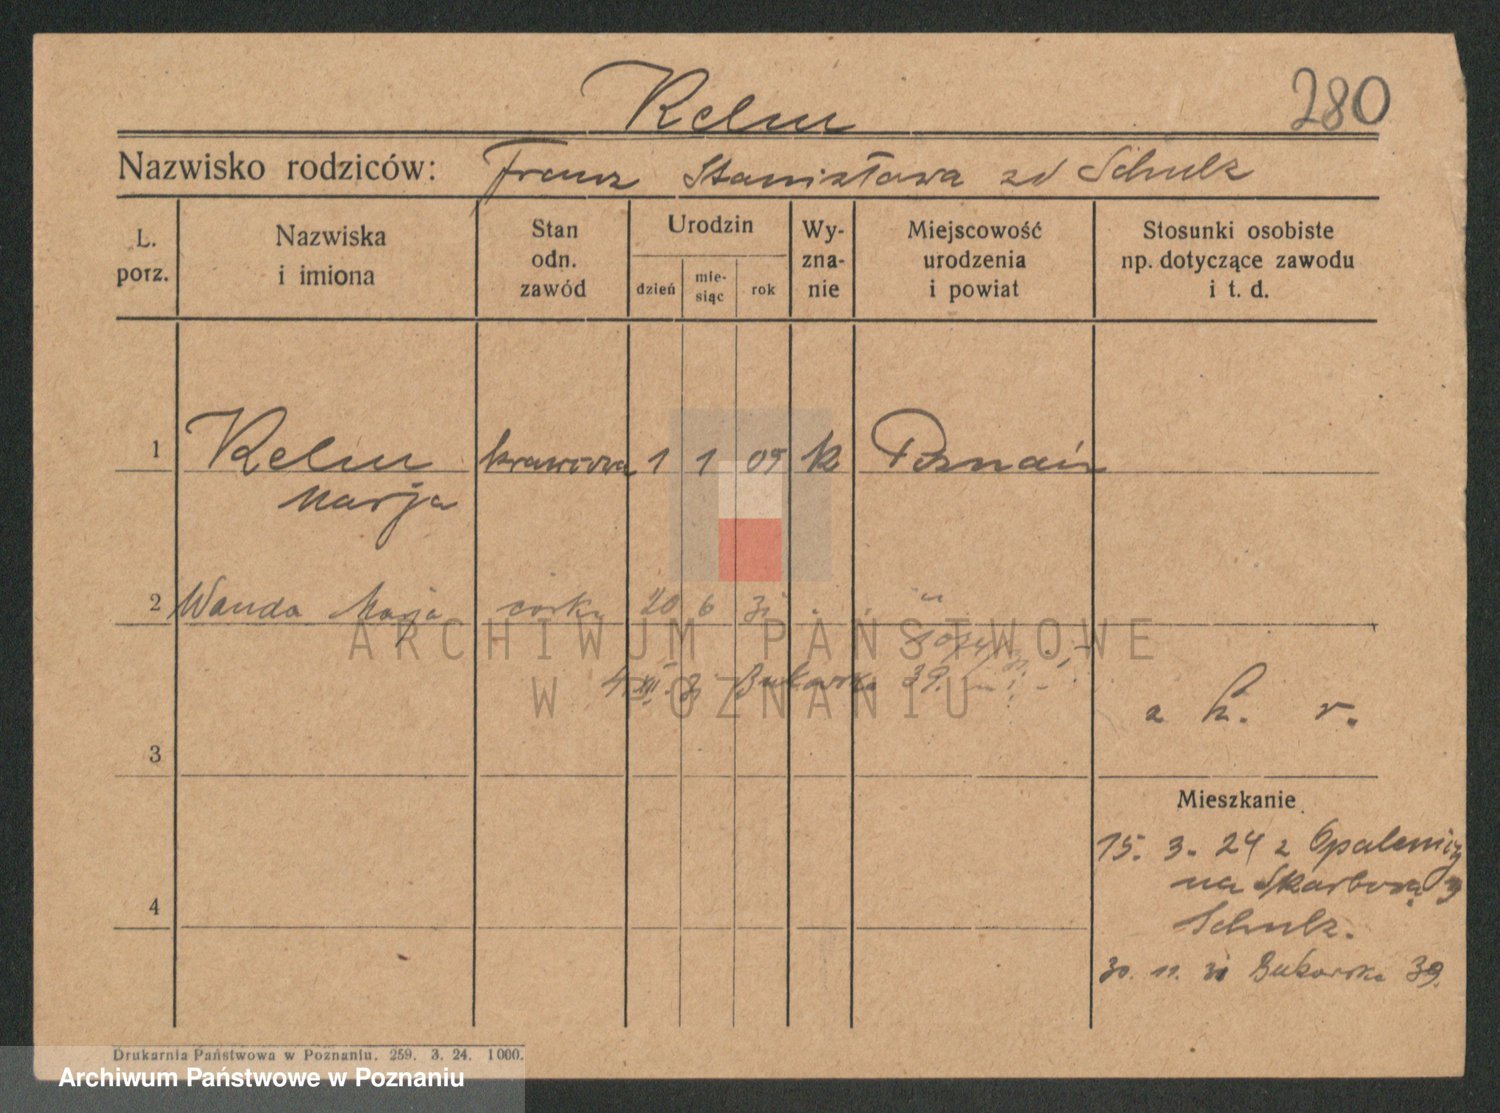 280
Kelm
Nazwisko rodziców: Franz Stanisława zd Schulz
L. porz.
Nazwiska i imiona
Stan odn. zawód
Urodzin
dzień
mie-siąc
rok
Wy-zna-nie
Miejscowość urodzenia i powiat
Stosunki osobiste np. dotyczące zawodu i t. d.
1 Kelm krawcowa 1 1 05 k Poznań
Marja
2 Wanda Marja córka 20 6 31 "
ARCHIWUM PAŃSTWOWE
W POZNANIU
4 XII. 31 Bukowska 39.
z k. r.
3
Mieszkanie
15. 3. 24 z Opalenicy
na Skarbową 3
Schulz.
4
30. 11. 31 Bukowska 39.
Drukarnia Państwowa w Poznaniu. 259. 3. 24. 1000.
Archiwum Państwowe w Poznaniu